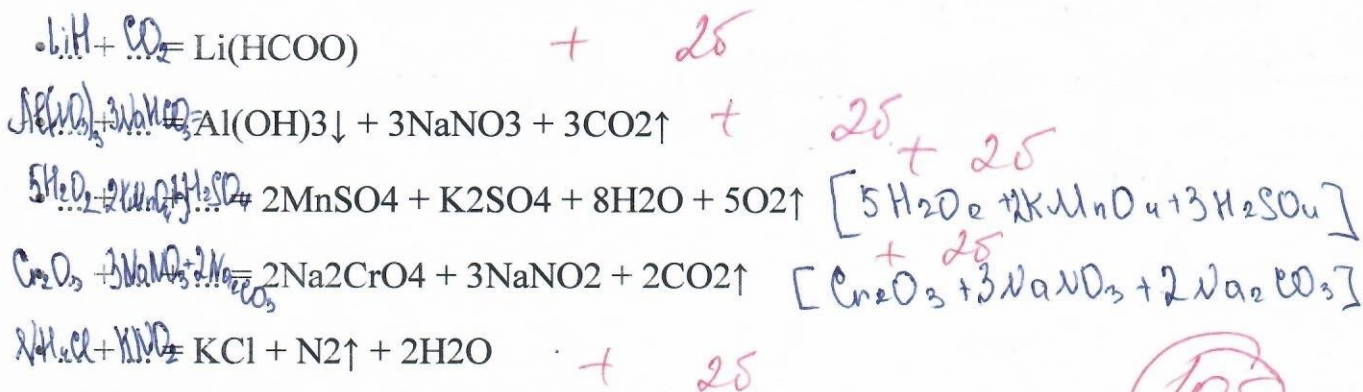 LiH + CO2 = Li(HCOO) + 2б
Al(NO3)3 + 3NaHCO3 = Al(OH)3↓ + 3NaNO3 + 3CO2↑ + 2б
5H2O2 + 2KMnO4 + 3H2SO4 = 2MnSO4 + K2SO4 + 8H2O + 5O2↑ [5H2O2 + 2KMnO4 + 3H2SO4] + 2б
Cr2O3 + 3NaNO3 + 2Na2CO3 = 2Na2CrO4 + 3NaNO2 + 2CO2↑ [Cr2O3 + 3NaNO3 + 2Na2CO3] + 2б
NH4Cl + KNO2 = KCl + N2↑ + 2H2O + 2б